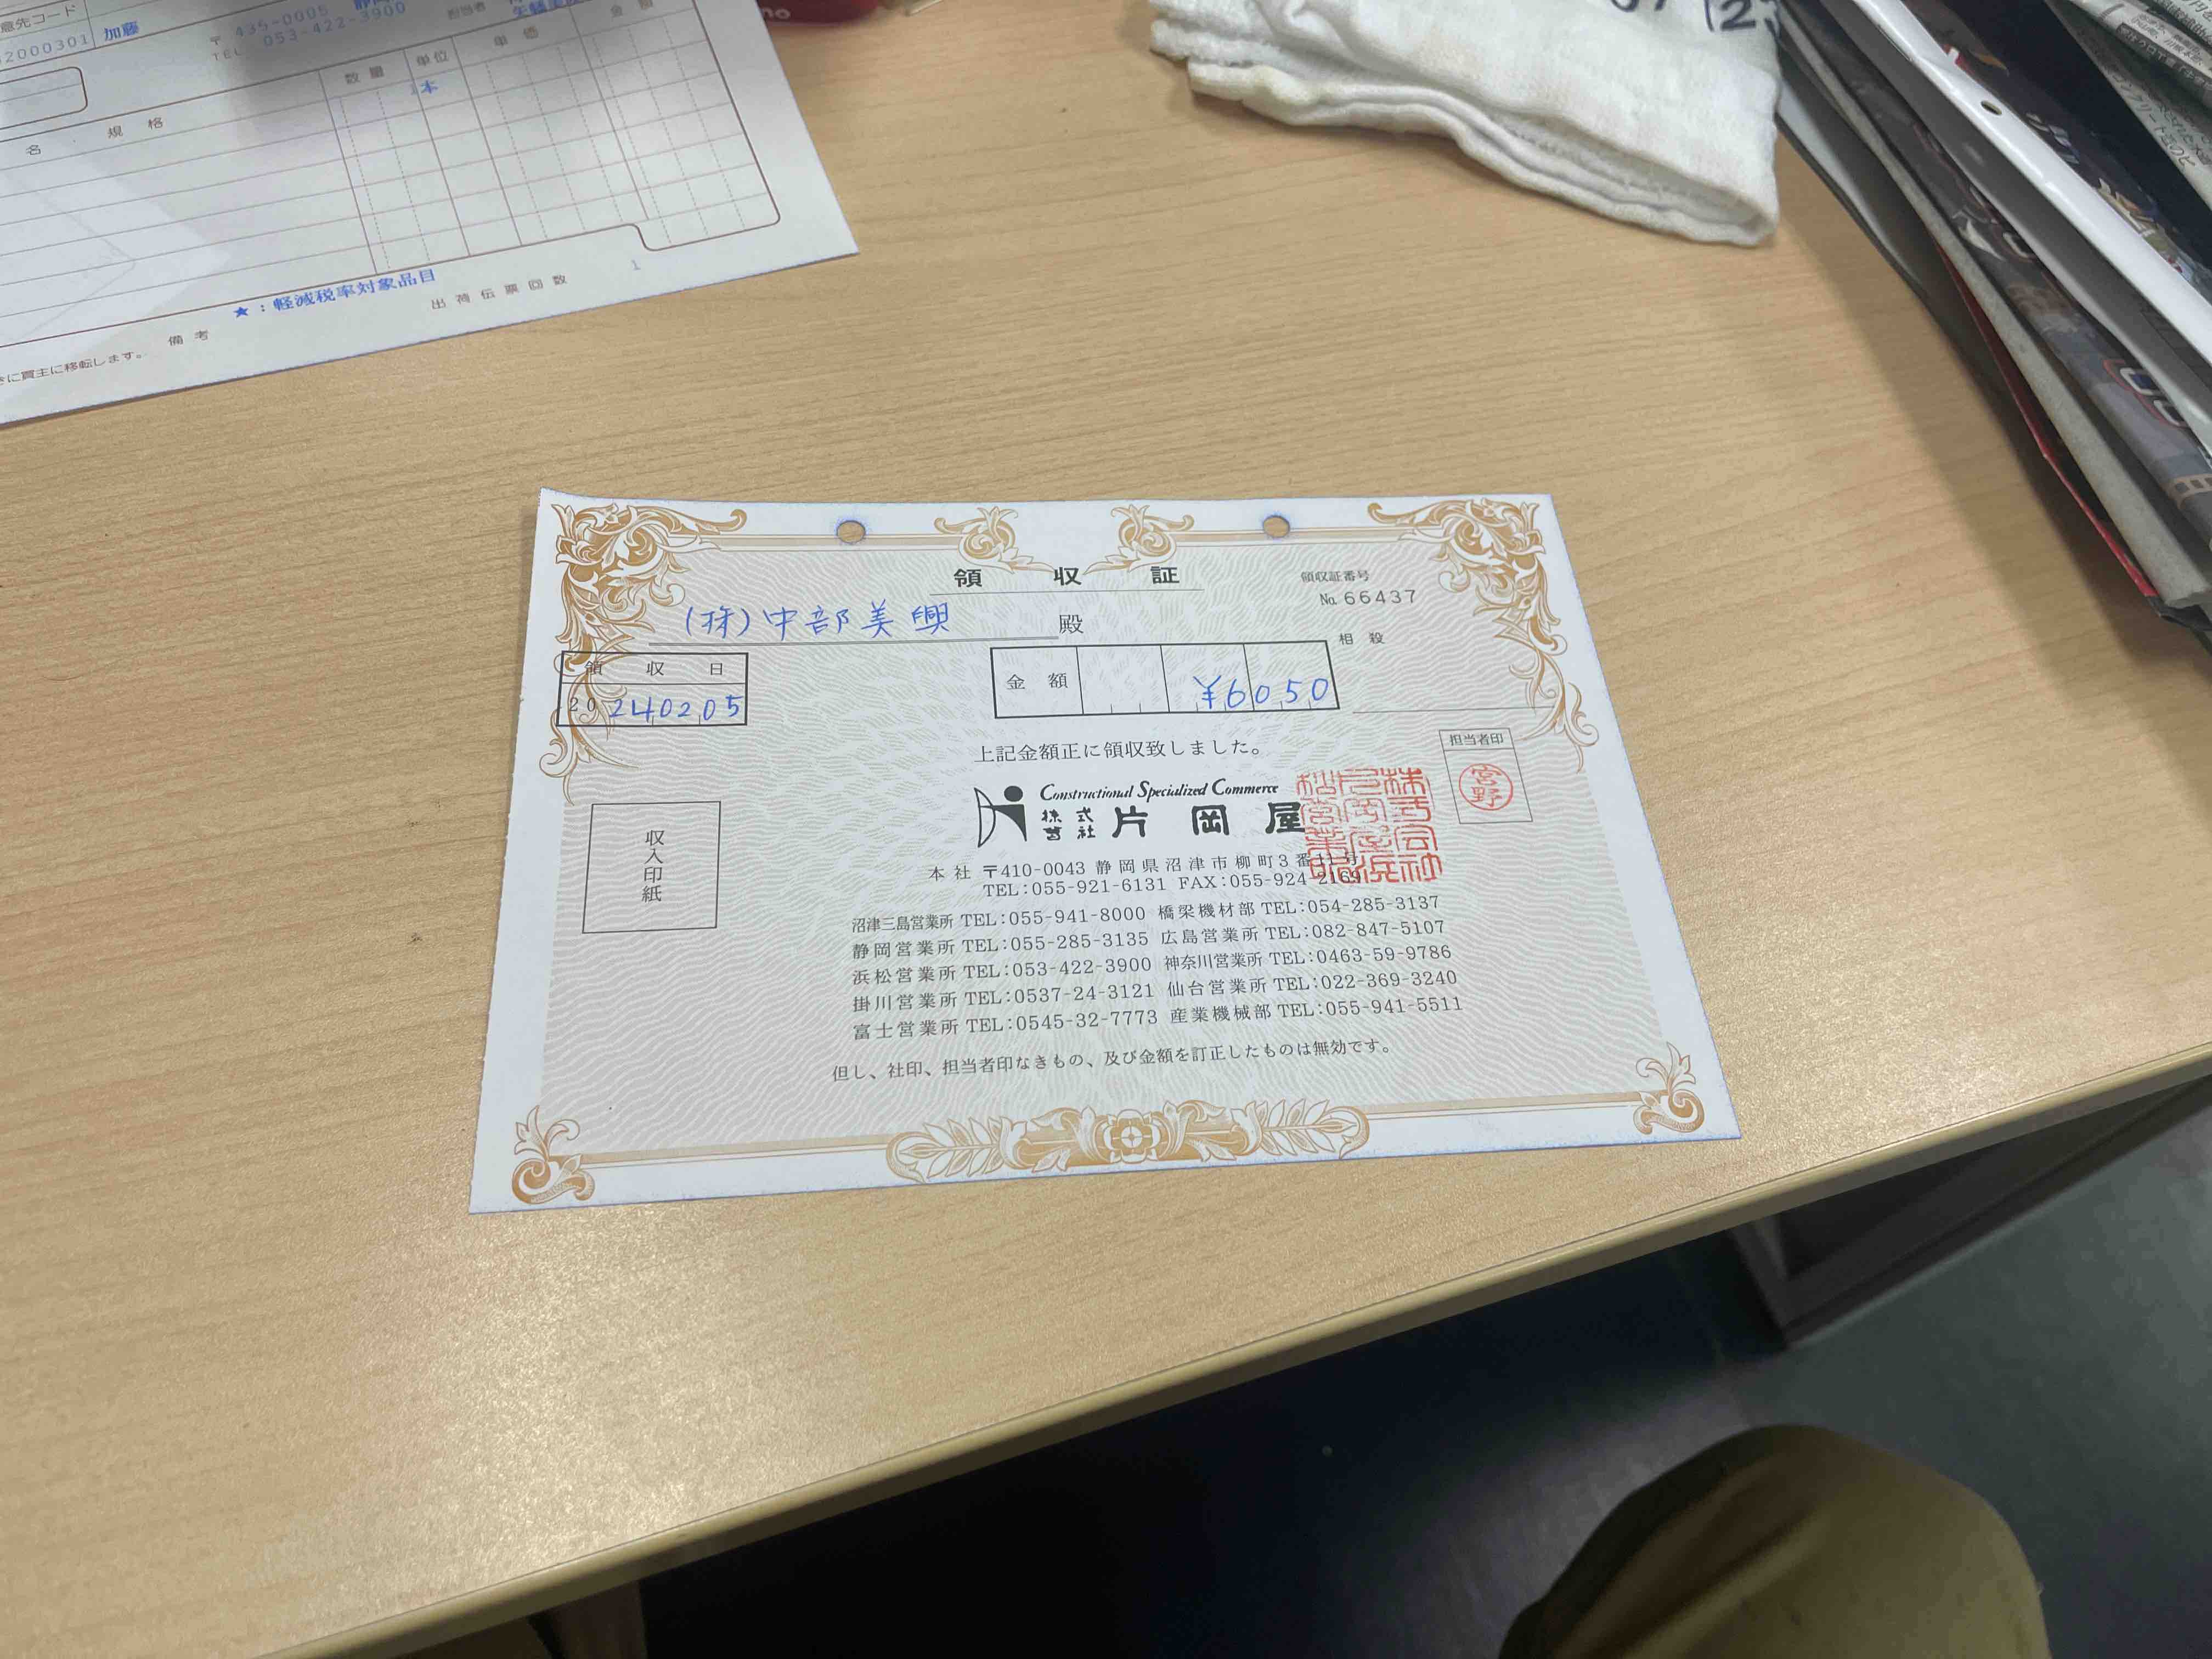 意先コード
2000301 加藤
〒 435-0005
TEL 053-422-3900
担当者
数 量 単位 単 価 金 額
名 規 格
本
★:軽減税率対象品目
備 考
出 荷 伝 票 回 数 1
きに買主に移転します。
領 収 証
領収証番号
№ 66437
(株)中部美興 殿
相 殺
領 収 日
20240205
金 額 ¥6050
上記金額正に領収致しました。
担当者印
宮野
Constructional Specialized Commerce
株式会社 片岡屋
株式会社片岡屋浜松営業所
収入印紙
本 社 〒410-0043 静岡県沼津市柳町3番11号
TEL:055-921-6131 FAX:055-924-2169
沼津三島営業所 TEL:055-941-8000 橋梁機材部 TEL:054-285-3137
静岡営業所 TEL:055-285-3135 広島営業所 TEL:082-847-5107
浜松営業所 TEL:053-422-3900 神奈川営業所 TEL:0463-59-9786
掛川営業所 TEL:0537-24-3121 仙台営業所 TEL:022-369-3240
富士営業所 TEL:0545-32-7773 産業機械部 TEL:055-941-5511
但し、社印、担当者印なきもの、及び金額を訂正したものは無効です。